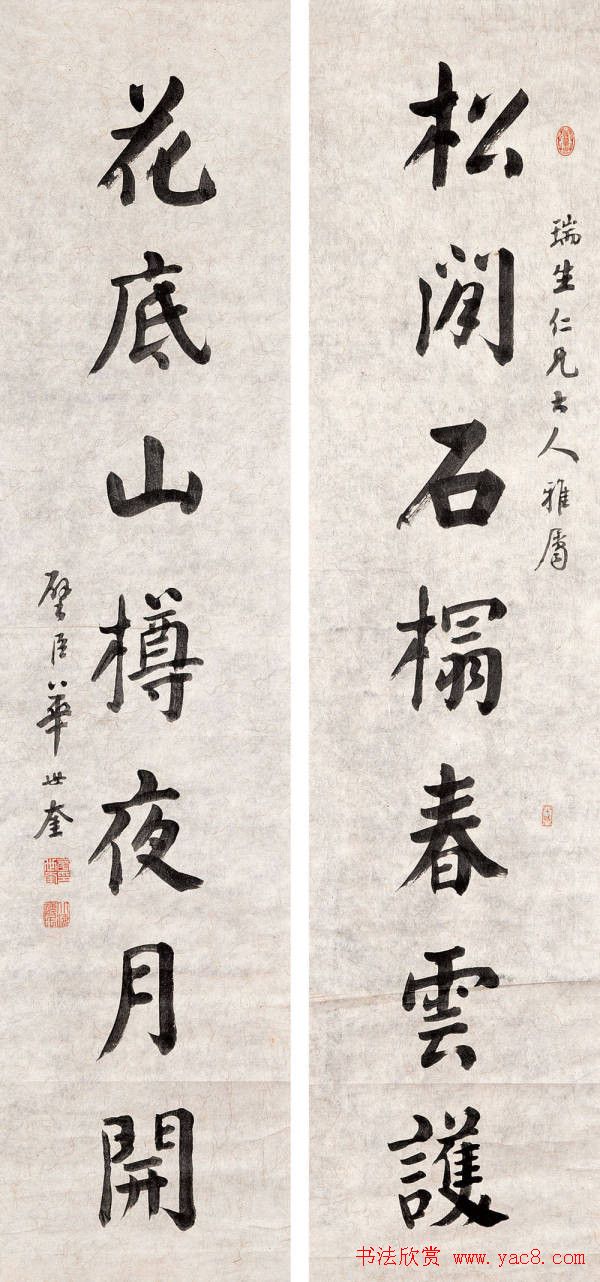 瑞生仁兄大人雅屬
松閒石榻春雲護
花底山樽夜月開
璧臣華世奎
书法欣赏 www.yac8.com